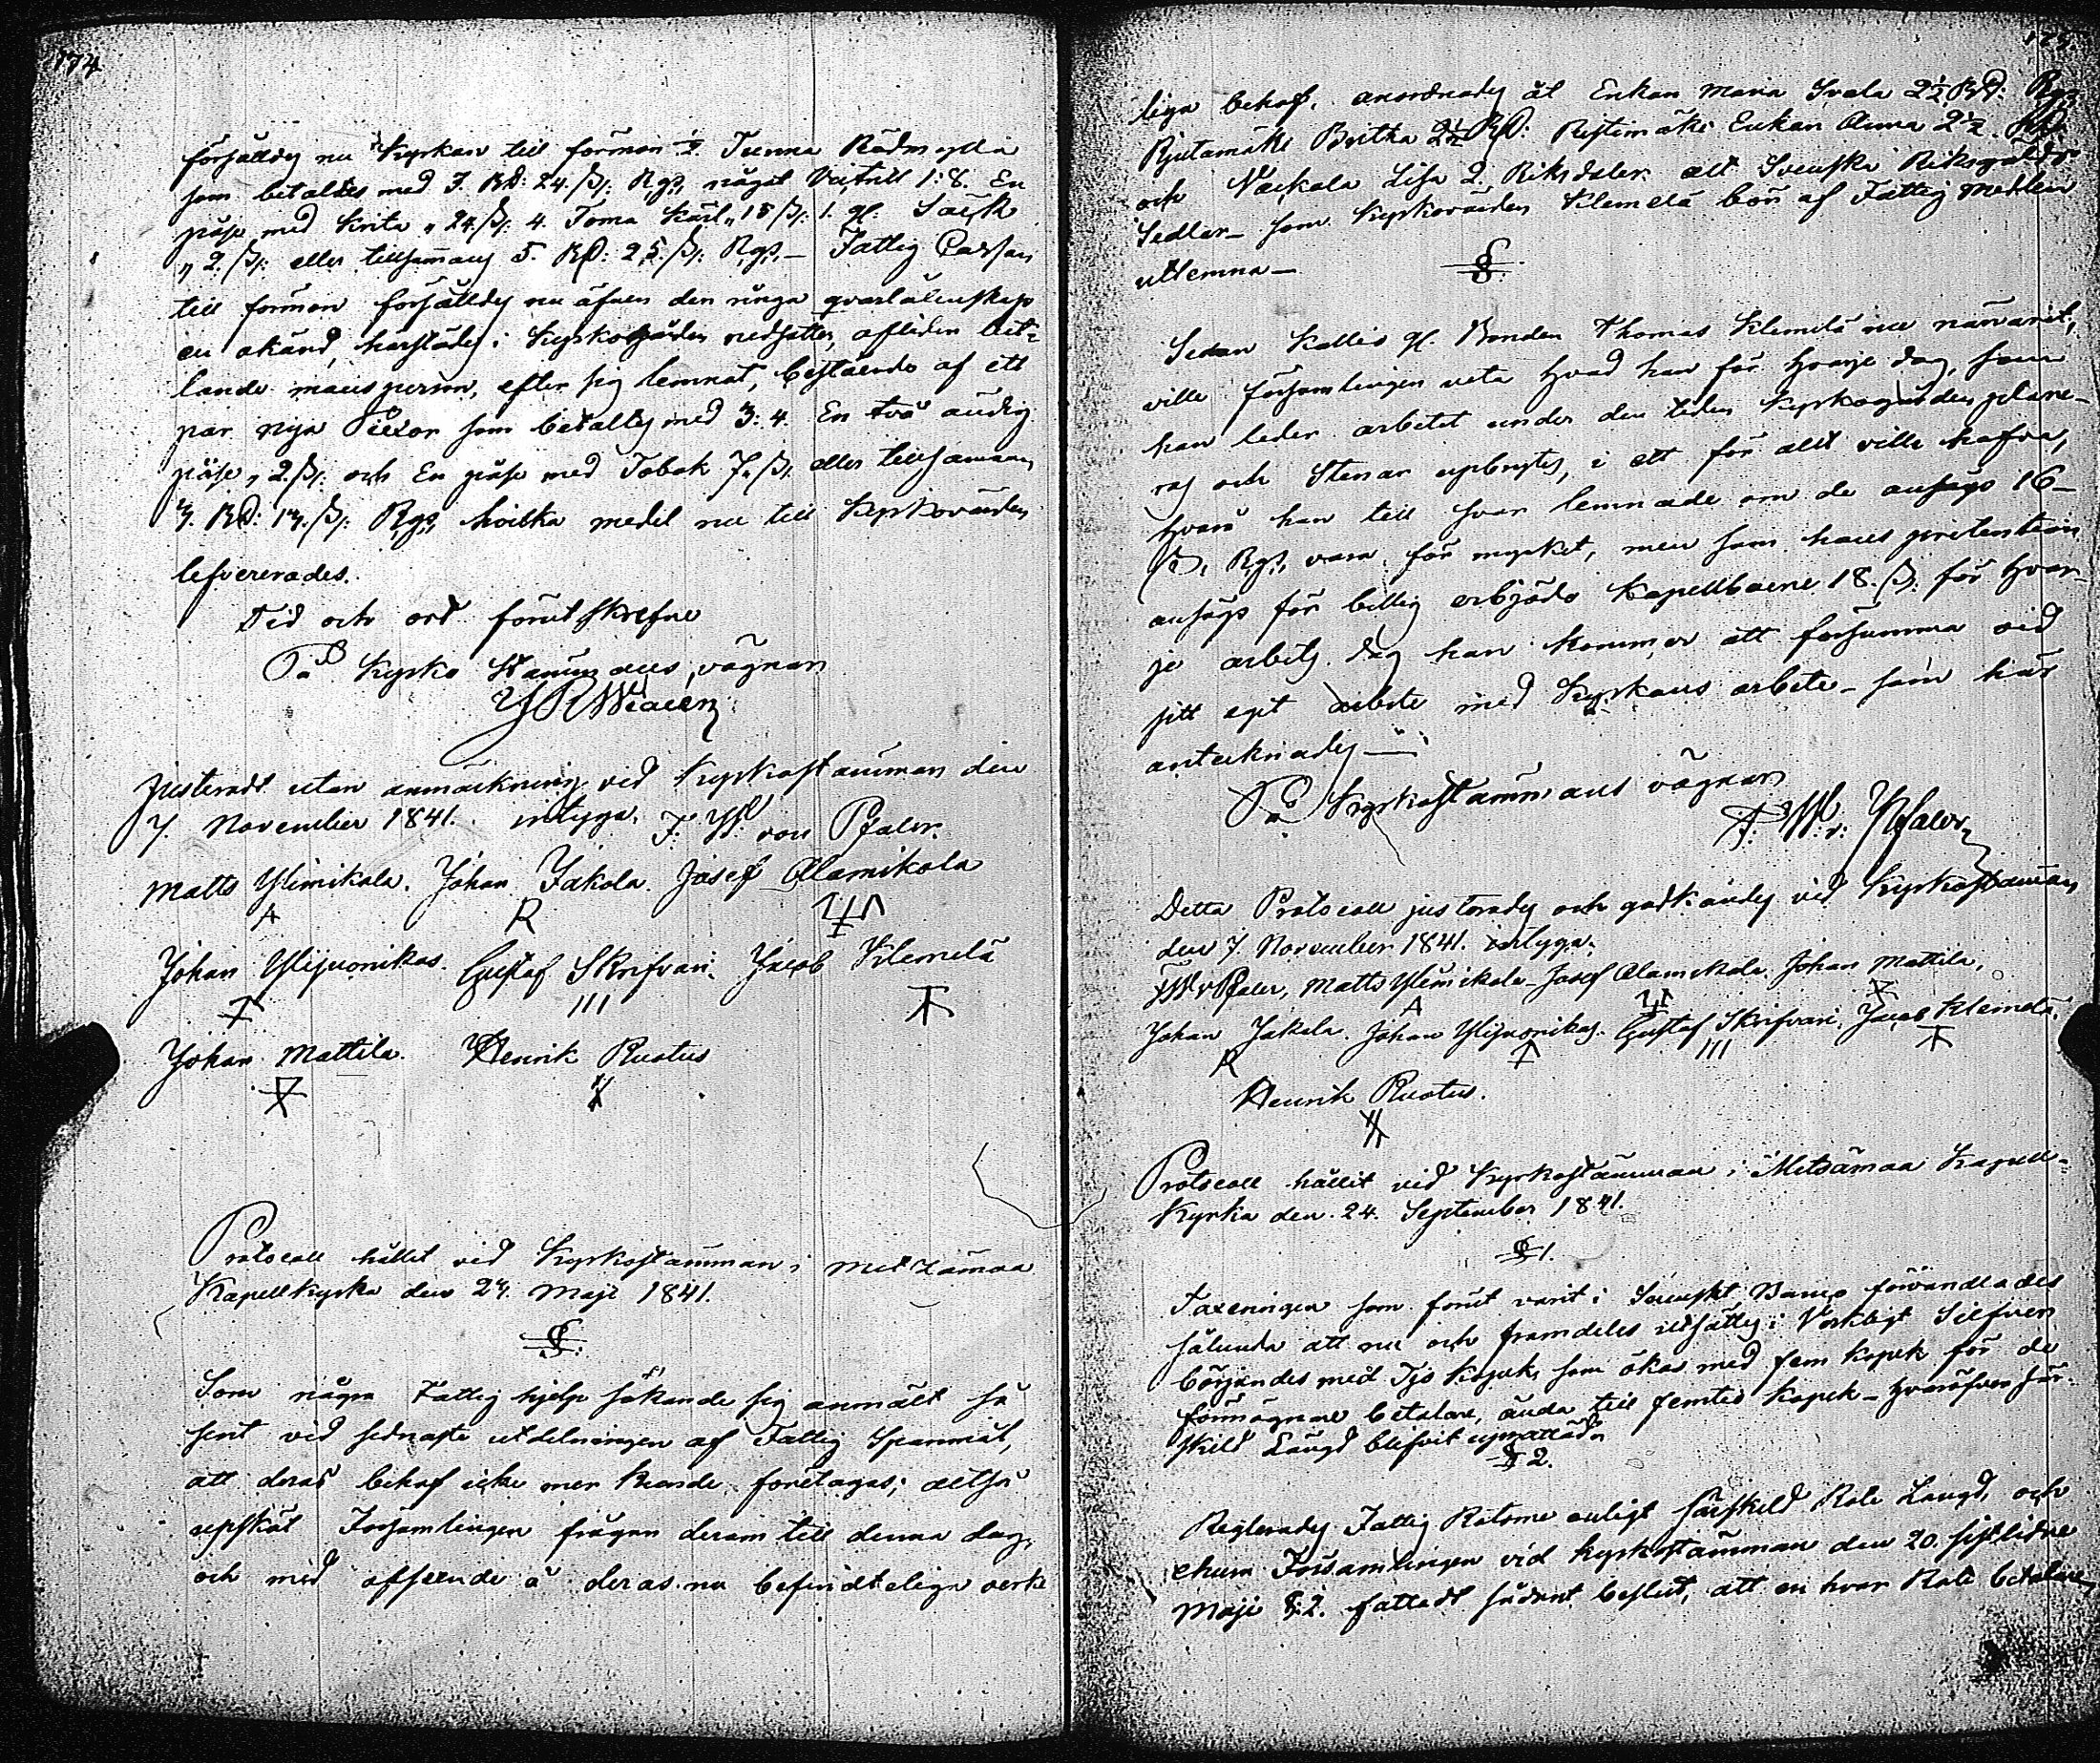 174
försåldes nu Kyrkan till förmon ½ Tunna Rödmylla
som betaltes med 3. RD: 24. /3/: Rgs, något Victrill 1: 8. En
påse med Krita " 24 /3/: 4. Toma Kärl " 15 /3/: 1. gl. Säck
" 2. /3/: eller tillsammans 5. RD: 25. /3/: Rgs. — Fattig Cassan
till förmon försåldes nu äfven den ringa qvarlåtenskap
en okänd, härstädes i Kyrkogården nedsatter, afliden but=
lande mansperson, efter sig lemnat, bestående af ett
par nya som betaltes med 3: 4. En två
påse " 2. /3/: och En påse med Tobak 7. /3/. eller tillsammans
3. RD: 13. /3/: Rgs, hvilka medel nu till Kyrkovärden
lefvererades.
Tid och ort förutskrefne
På Kyrko Stämmans vägnar
Justeradt utan anmärkning vid Kyrkostämman den
7. November 1841. intyga. F. W. von Pfaler.
Matts Ylimikola. Johan Jakola. Josef Alamikola
Johan Ylijuonikas. Gustaf Skrifvari. Jacob Klemelä
Johan Mattila. Henrik Ruotus
Protocoll hållet vid Kyrkostämman i Metzämaa
Kapellkyrka den 24. Maji 1841.
§.
Som några Fattig hjelp sökande sig anmält så
sent vid sednaste utdelningen af Fattig Spanmål,
att deras behof icke mer kunde företagas; altså
upsköt Församlingen frågan derom till denna dag,
och med afseende å deras nu befindteliga verk
liga behof, anordnades åt Enkan Maria Svala 2½ RD: Rgs
Rjutamäki Britka 2½ RD: Ristimäki Enkan Anna 2½ RD.
och Nackala Lisa 2. Riksdaler allt Svenska Riksgälds
Sedlar — som Kyrkovärden Klemelä bör af Fattig Medlen
utlemna —
§.
Sedan Kallio gl. Bonden Thomas Klemelä nu närvarit,
ville församlingen veta hvad han för hvarje dag, som
han leder arbetet under den tiden Kyrkogården plane-
ras och Stenar upbrytes, i ett för allt ville hafva,
hvarå han till svar lemnade om de ansågo 16
/3/. Rgs. vara för mycket, men som hans pretention
ansågs för billig erbjöds Kapellboerne 18. /3/: för hvar-
je arbets dag han kommer att försumma vid
sitt eget arbete med Kyrkans arbete — som här
antecknades —
På Kyrkostämmans vägnar
F. W. v. Pfaler
Detta Protocoll justerades och godkändes vid Kyrkostämman
den 7. November 1841. intyga.
FW v Pfaler, Matts Ylimikola Josef Alamikola Johan Mattila,
Johan Jakola. Johan Ylijuonikas. Gustaf Skrifvari. Jacob Klemelä.
Henrik Ruotus.
Protocoll hållit vid Kyrkostämman i Metsämaa Kapell-
Kyrka den 24. September 1841.
§ 1.
Taxeringen som förut varit i Svenskt Banco förvandlades
sålunda att nu och framdeles utsättes i Verkligt Silfver
börjandes med Tjo kopek, som ökas med fem kopek för de
förmögnare betalare, ända till femtio kopek — hvaröfver sär-
skild Längd blifvit uprättad
§ 2.
Reglerades Fattig Rotorne enligt särskild Rote Längd, och
ehuru Församlingen vid kyrkostämman den 20. sistlidne
Maji §. 2. fattadt sådant beslut, att en hvar Rote betalare